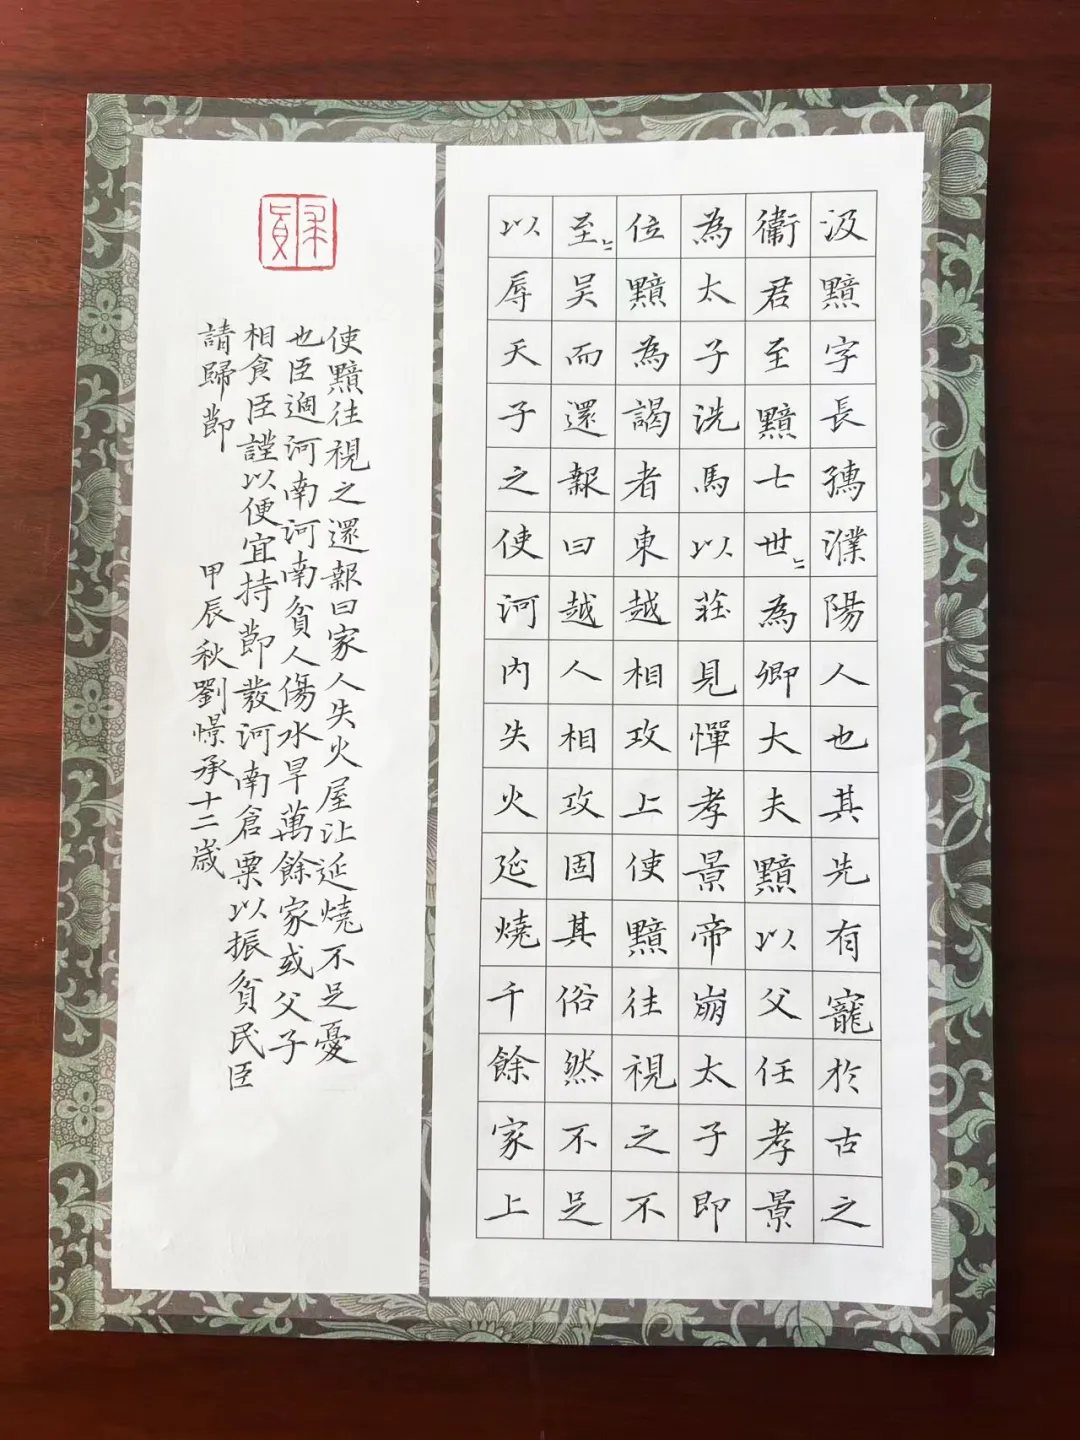 汲黯字長孺濮陽人也其先有寵於古之
衞君至黯七世〻為卿大夫黯以父任孝景
為太子洗馬以莊見憚孝景帝崩太子即
位黯為謁者東越相攻上使黯往視之不
至〻吴而還報曰越人相攻固其俗然不足
以辱天子之使河内失火延燒千餘家上
使黯往視之還報曰家人失火屋比延燒不足憂
也臣過河南河南貧人傷水旱萬餘家或父子
相食臣謹以便宜持節發河南倉粟以振貧民臣
請歸節
甲辰秋劉憬承十二歲